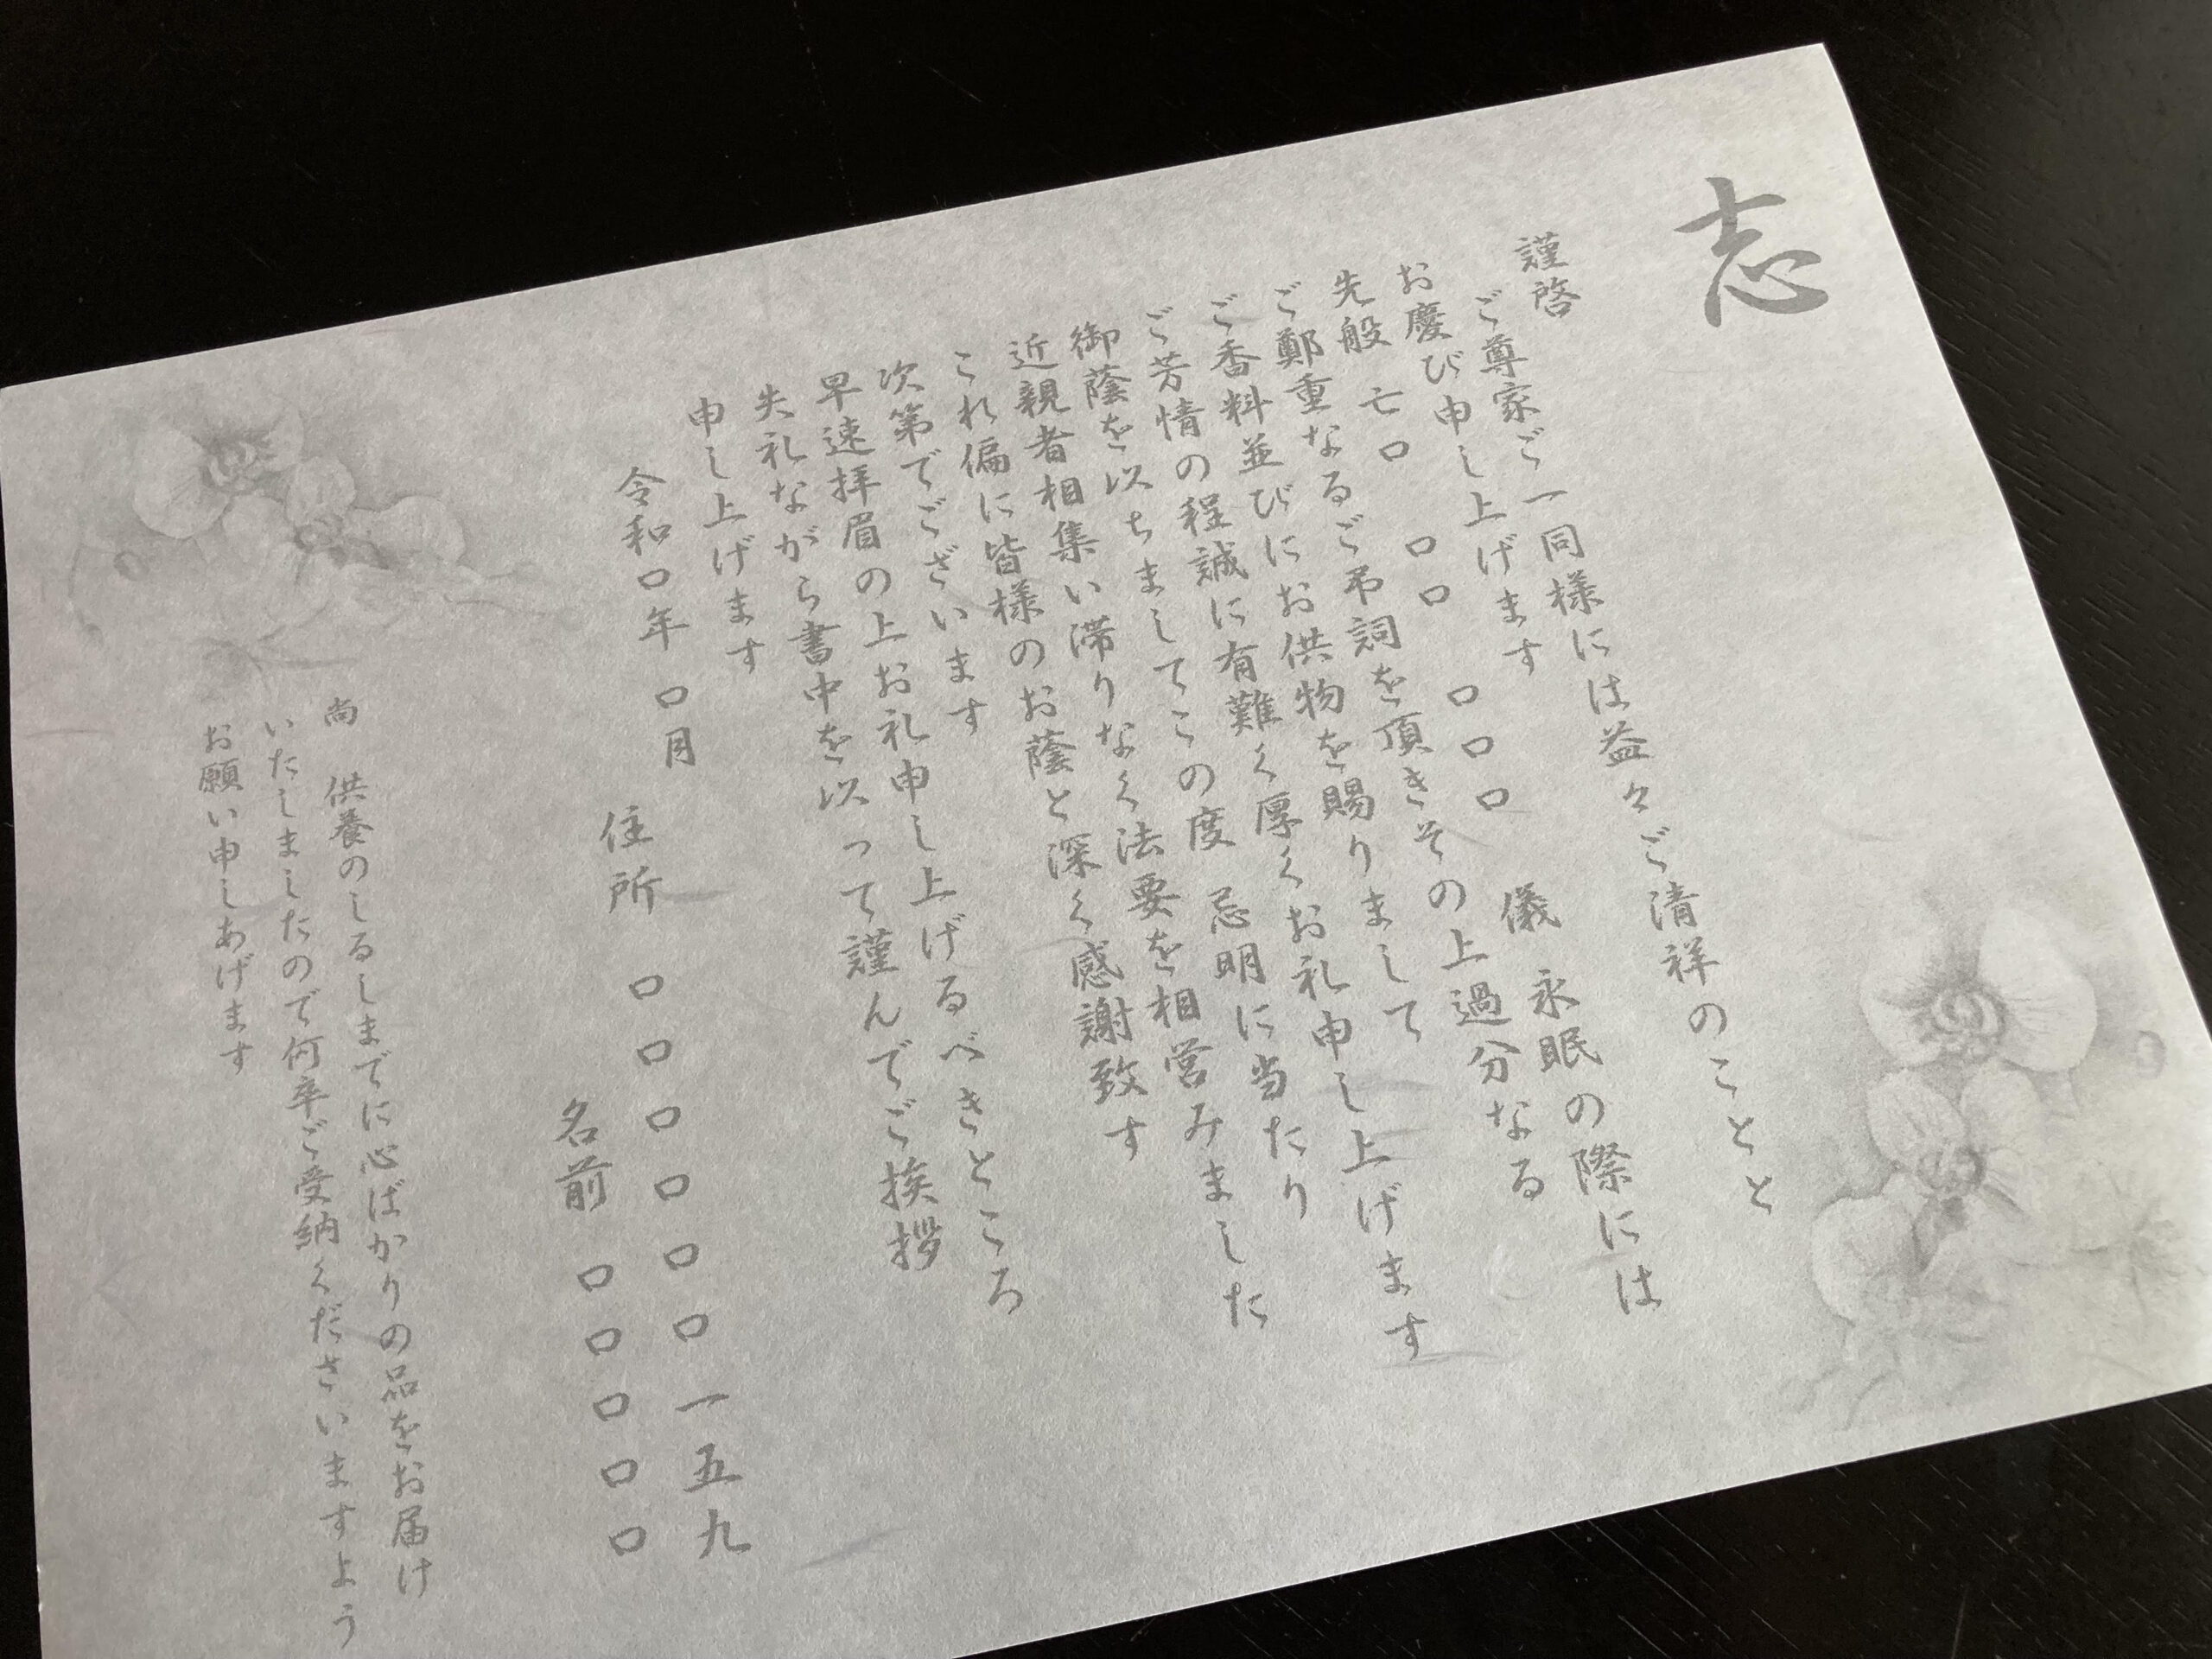 志
謹啓
ご尊家ご一同様には益々ご清祥のことと
お慶び申し上げます
先般 亡口 口口 口口口 儀 永眠の際には
ご鄭重なるご弔詞を頂きその上過分なる
ご香料並びにお供物を賜りまして
ご芳情の程誠に有難く厚くお礼申し上げます
御蔭を以ちましてこの度 忌明に当たり
近親者相集い滞りなく法要を相営みました
これ偏に皆様のお蔭と深く感謝致す
次第でございます
早速拝眉の上お礼申し上げるべきところ
失礼ながら書中を以って謹んでご挨拶
申し上げます
令和口年 口月
住所 口口口口口口一五九
名前 口口口口口
尚 供養のしるしまでに心ばかりの品をお届け
いたしましたので何卒ご受納くださいますよう
お願い申しあげます